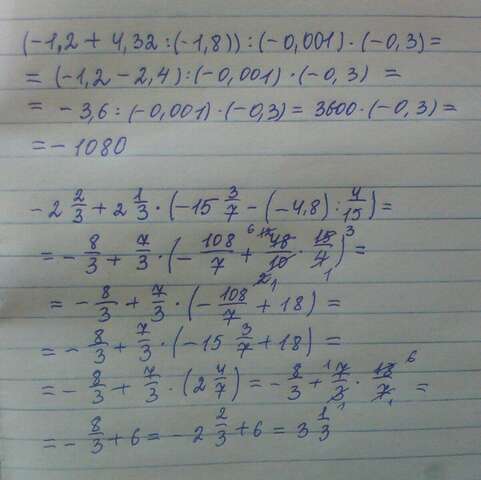 (-1,2 + 4,32 : (-1,8)) : (-0,001) · (-0,3) =
= (-1,2 - 2,4) : (-0,001) · (-0,3) =
= - 3,6 : (-0,001) · (-0,3) = 3600 · (-0,3) =
= - 1080
- 2 2/3 + 2 1/3 · (-15 3/7 - (-4,8) : 4/15) =
= - 8/3 + 7/3 · (- 108/7 + 48/10 · 15/4) =
= - 8/3 + 7/3 · (- 108/7 + 18) =
= - 8/3 + 7/3 · (-15 3/7 + 18) =
= - 8/3 + 7/3 · (2 4/7) = - 8/3 + 7/3 · 18/7 =
= - 8/3 + 6 = - 2 2/3 + 6 = 3 1/3